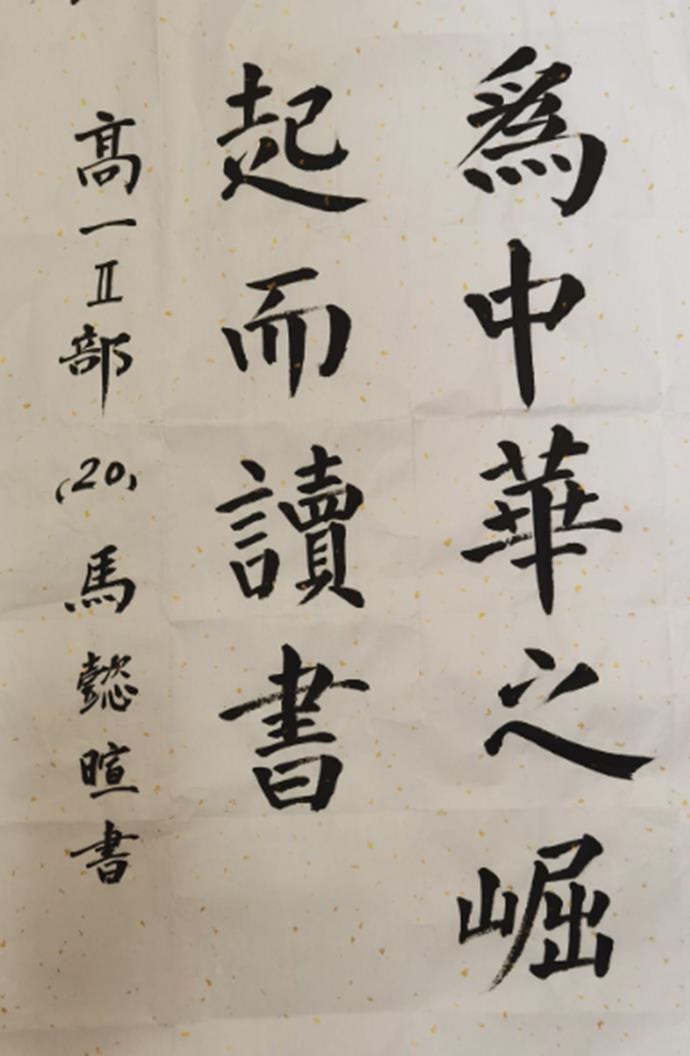 爲中華之崛
起而讀書
高一Ⅱ部(20)馬懿暄書